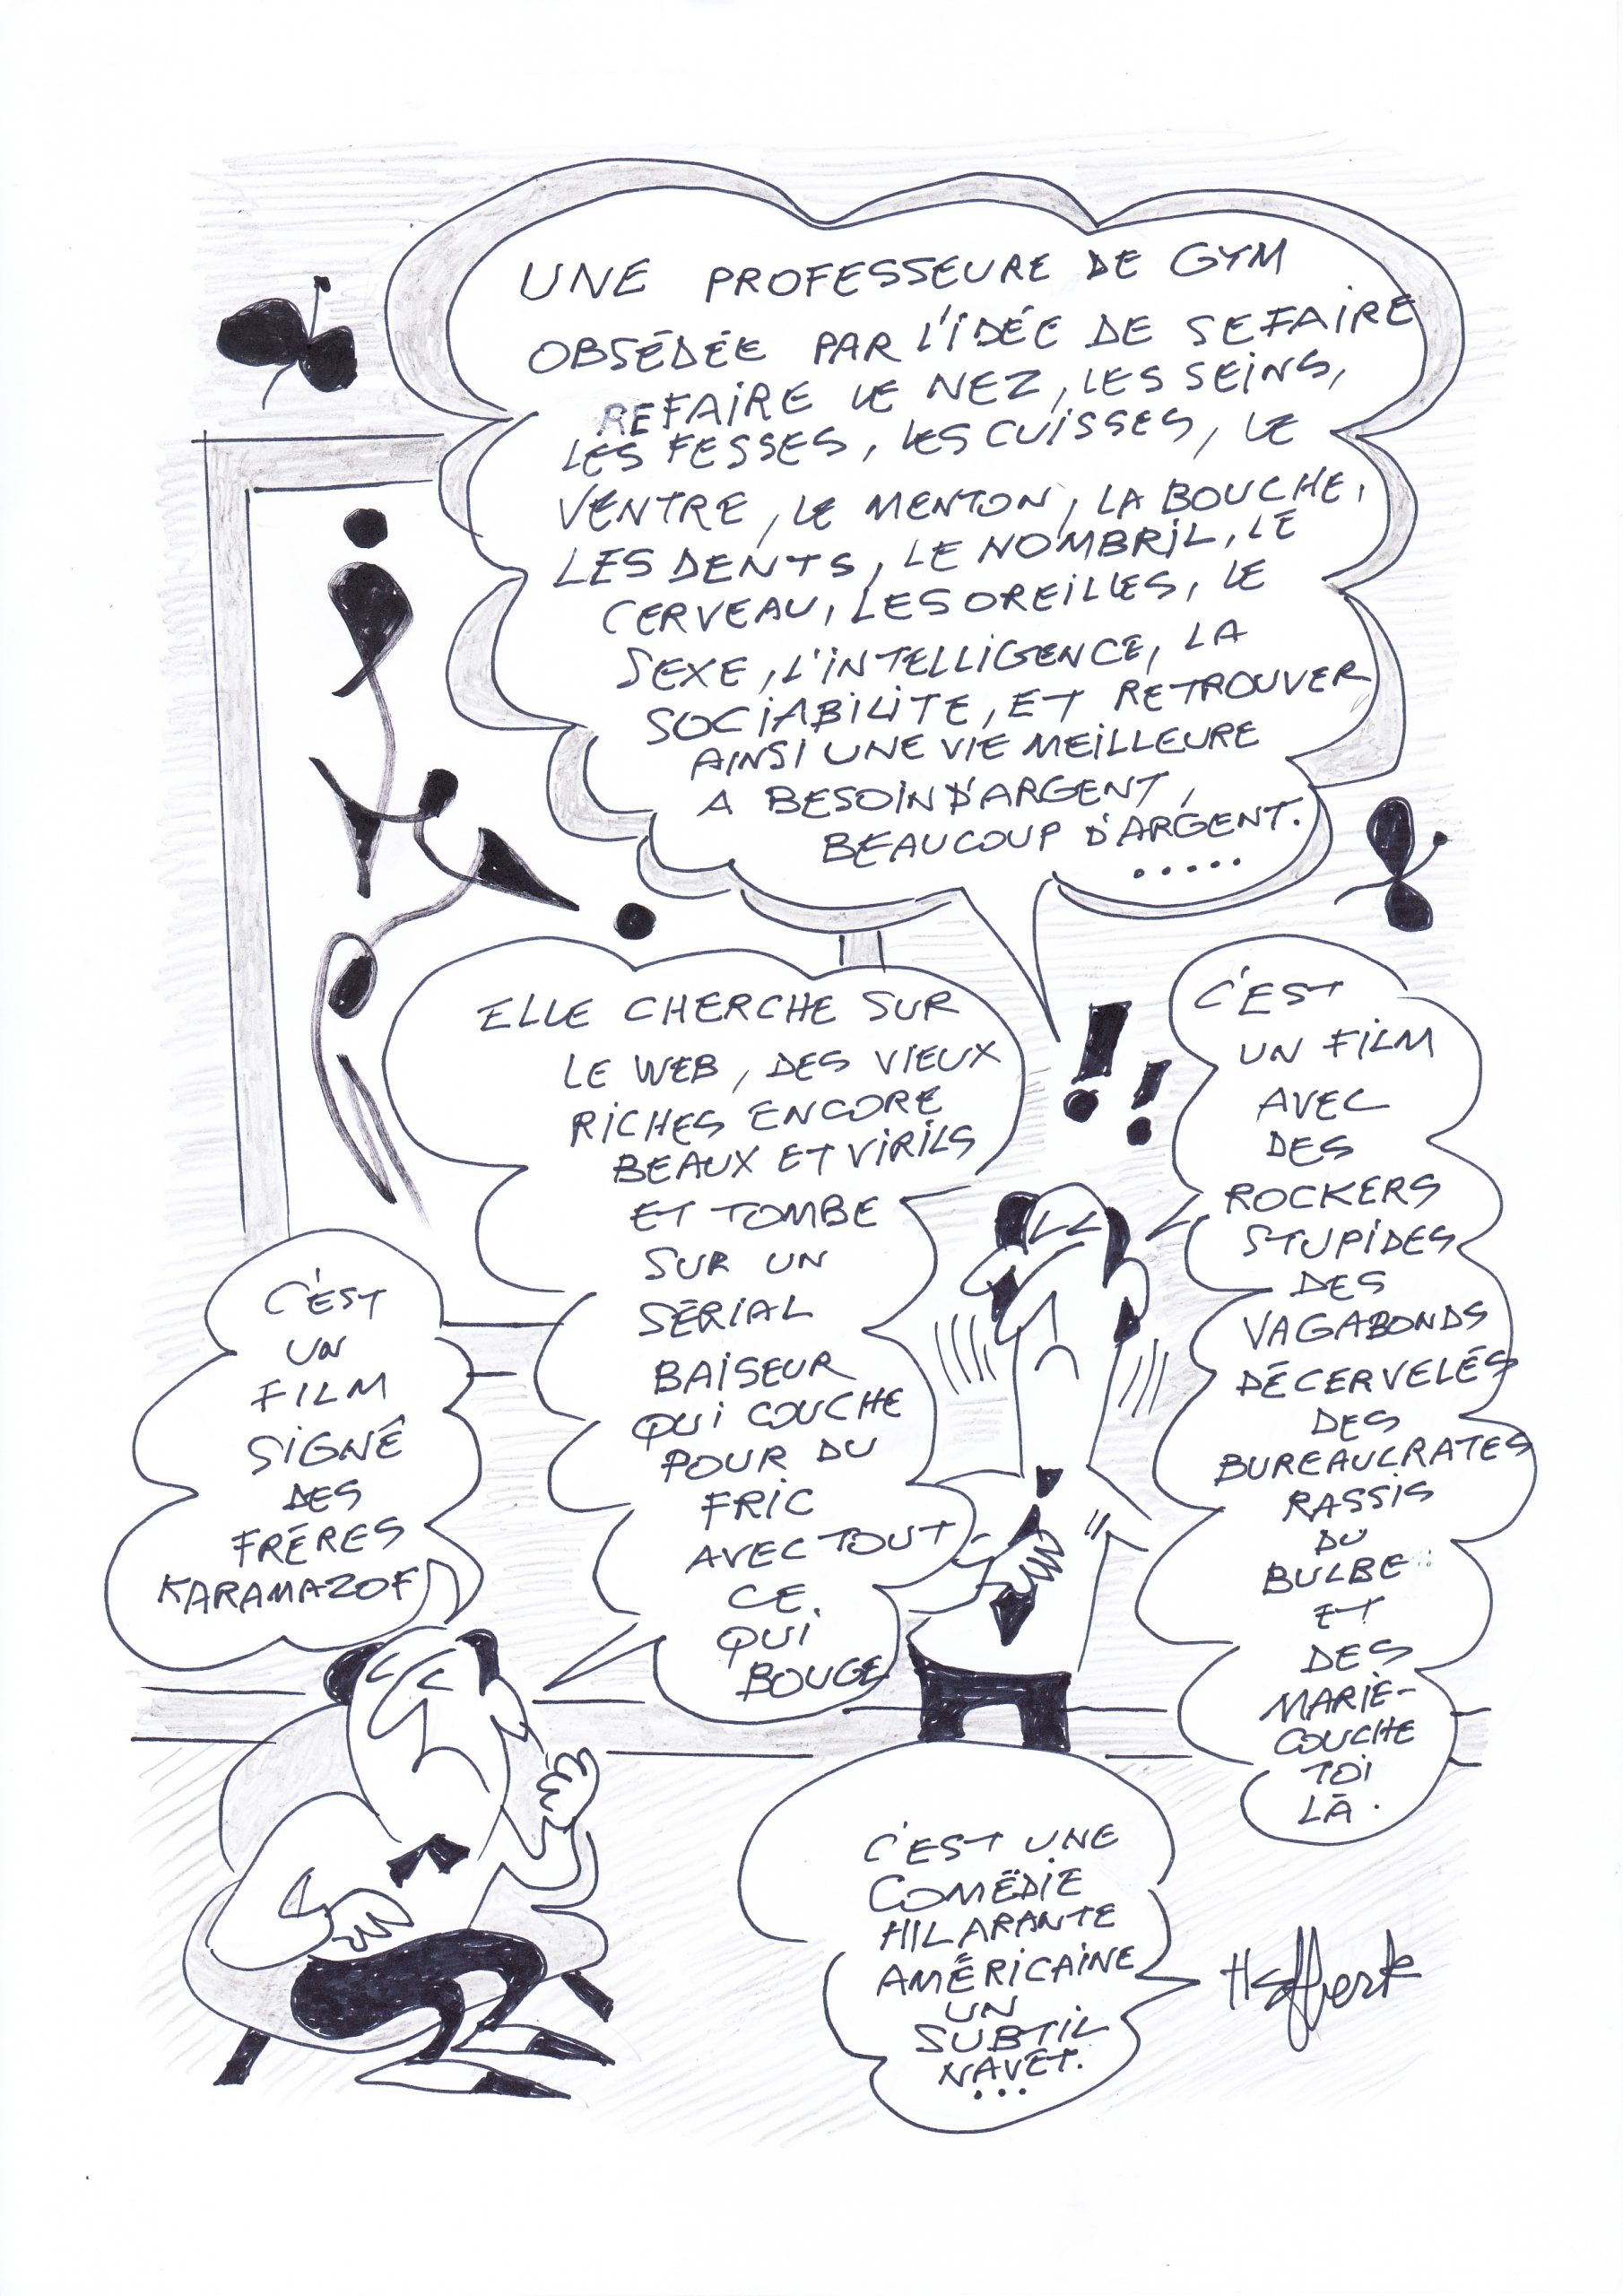 UNE PROFESSEURE DE GYM
OBSÉDÉE PAR L'IDÉE DE SE FAIRE
REFAIRE LE NEZ, LES SEINS,
LES FESSES, LES CUISSES, LE
VENTRE, LE MENTON, LA BOUCHE,
LES DENTS, LE NOMBRIL, LE
CERVEAU, LES OREILLES, LE
SEXE, L'INTELLIGENCE, LA
SOCIABILITE, ET RETROUVER
AINSI UNE VIE MEILLEURE
A BESOIN D'ARGENT,
BEAUCOUP D'ARGENT.
.....
ELLE CHERCHE SUR
LE WEB, DES VIEUX
RICHES ENCORE
BEAUX ET VIRILS
ET TOMBE
SUR UN
SÉRIAL
BAISEUR
QUI COUCHE
POUR DU
FRIC
AVEC TOUT
CE
QUI
BOUGE
!!
C'EST
UN FILM
AVEC
DES
ROCKERS
STUPIDES
DES
VAGABONDS
DÉCERVELÉS
DES
BUREAUCRATES
RASSIS
DU
BULBE
ET
DES
MARIE-
COUCHE
TOI
LÀ.
C'EST
UN
FILM
SIGNÉ
DES
FRÉRES
KARAMAZOF
C'EST UNE
COMÉDIE
HILARANTE
AMÉRICAINE
UN
SUBTIL
NAVET.
...